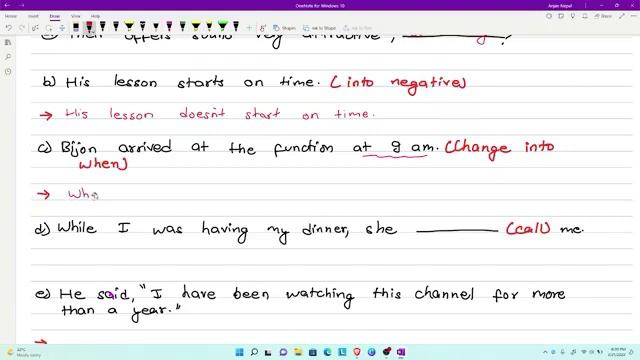 OneNote for Windows 10
Anjan Nepal
Home Insert Draw View Help
Shapes Ink to Shape
Their offers sound very attractive, ?
b) His lesson starts on time. (into negative)
→ His lesson doesn't start on time.
c) Bijon arrived at the function at 9 am. (Change into
when)
→ Whe
d) While I was having my dinner, she ________ (call) me.
e) He said, "I have been watching this channel for more
than a year."
→
22°C
Mostly sunny
4:30 PM